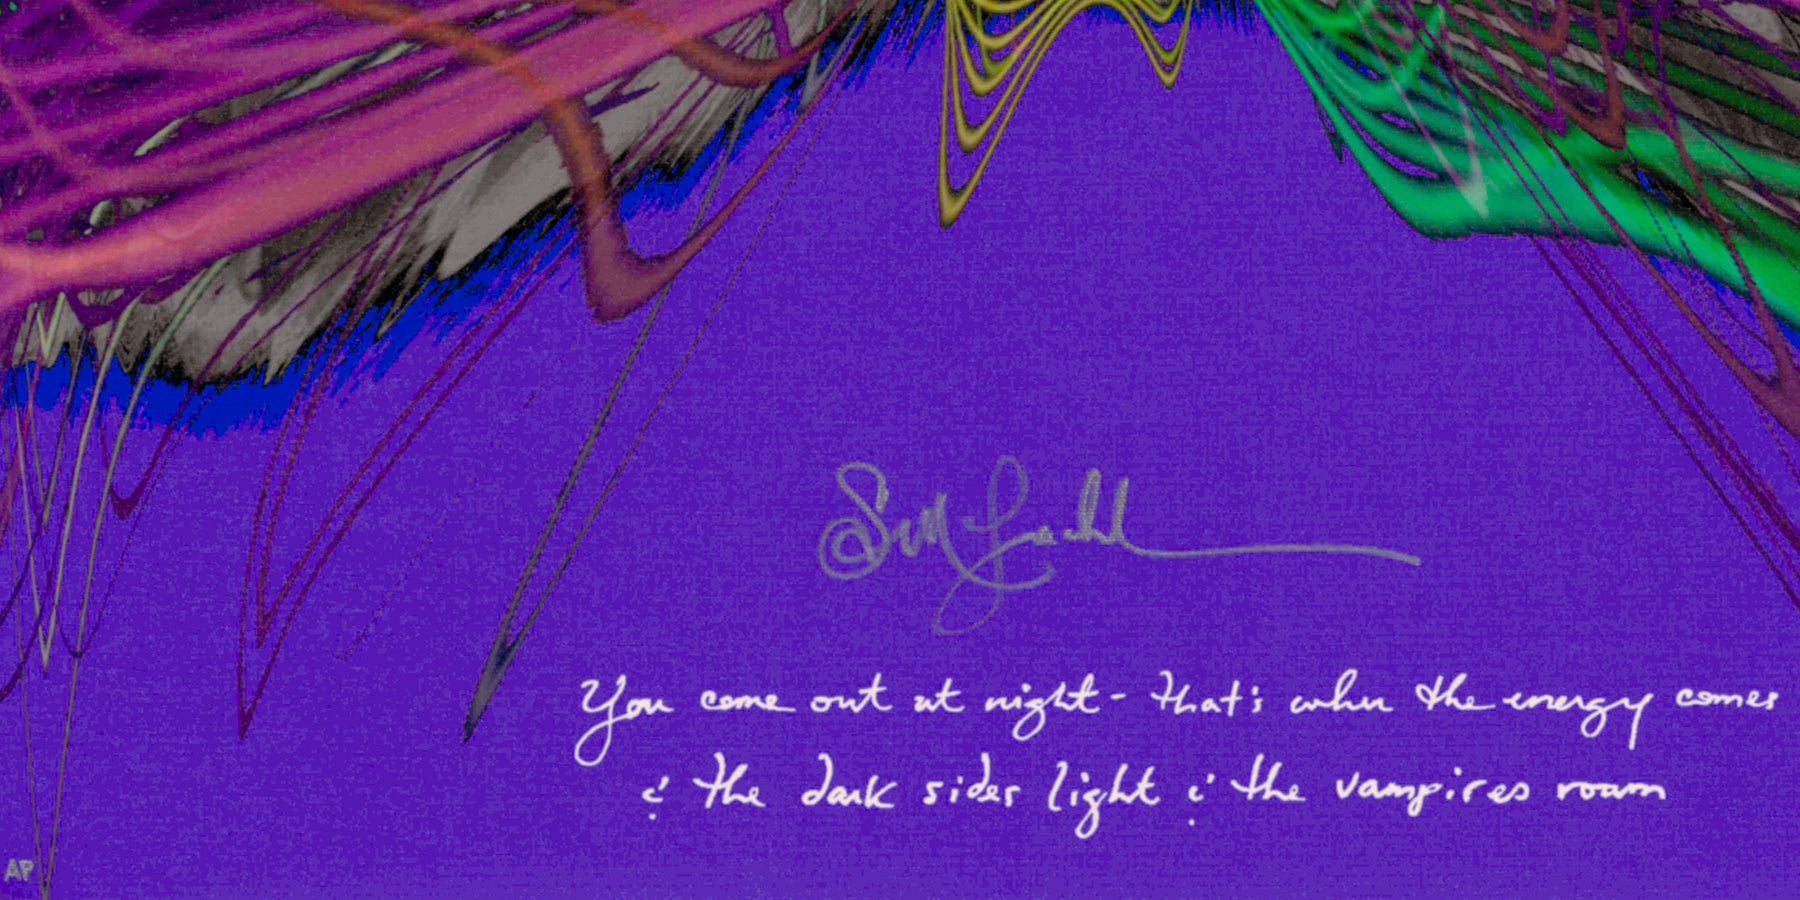 You come out at night - that's when the energy comes
& the dark sides light & the vampires roam
AP